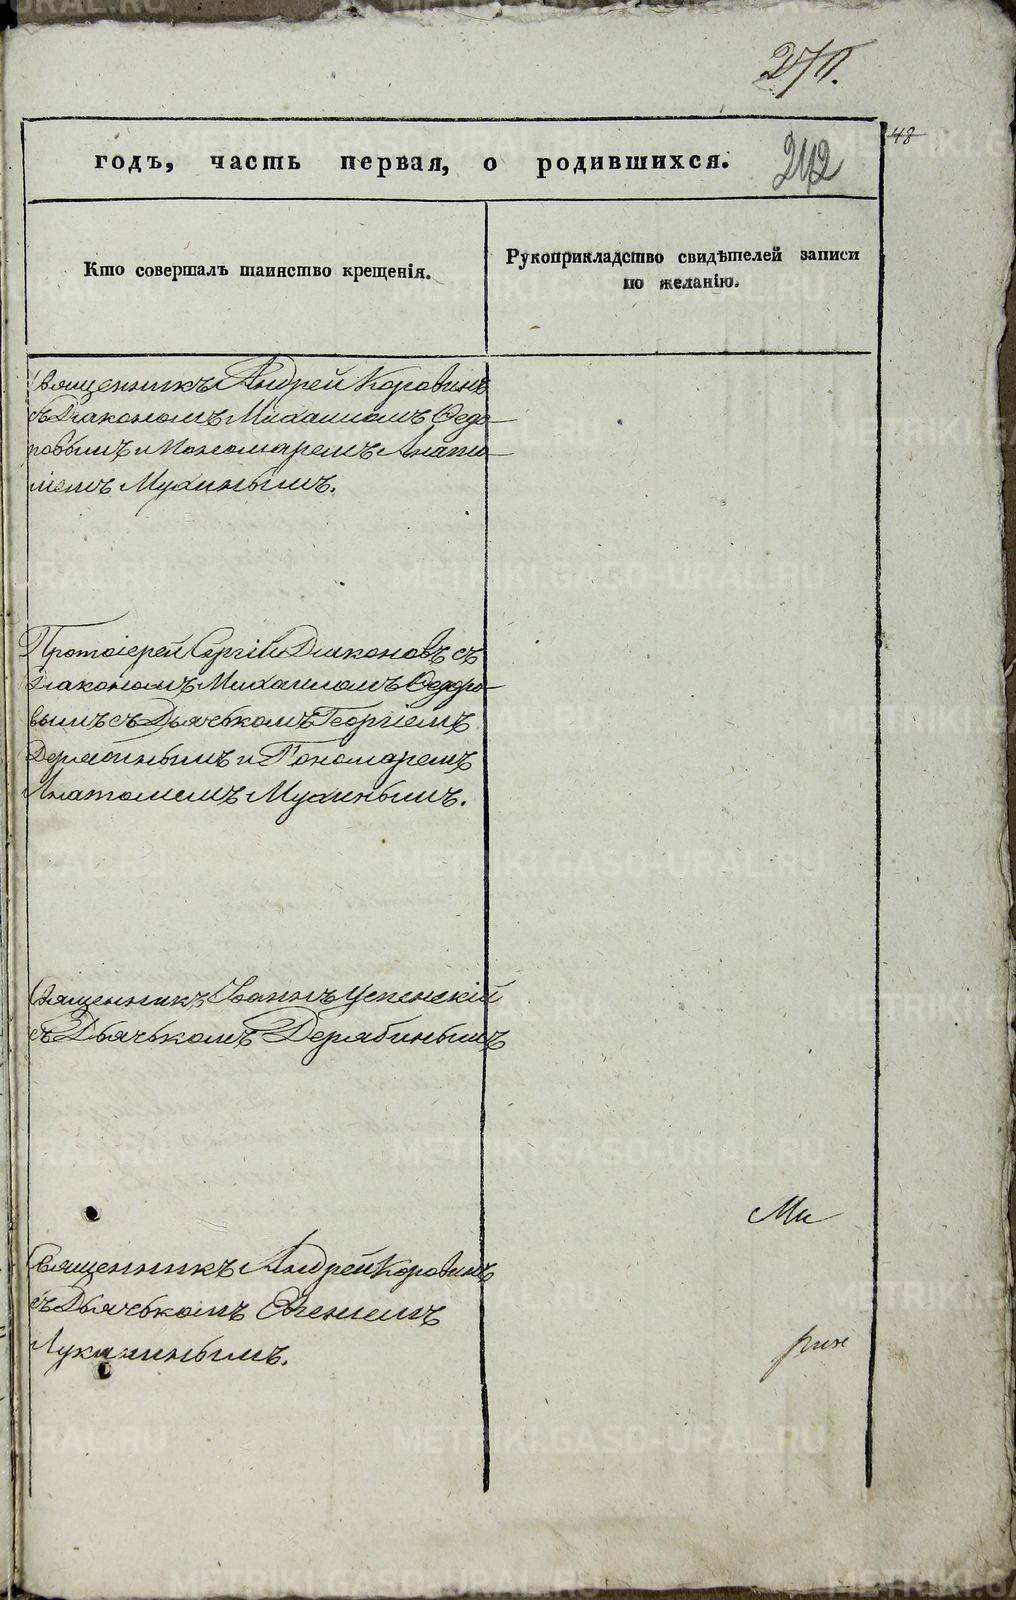 годъ, часть первая, о родившихся.
242
48
Кто совершалъ таинство крещенія.
Рукоприкладство свидѣтелей записи
по желанію.
Священникъ Андрей Коровинъ
съ Діакономъ Михаиломъ Ѳедо-
ровымъ и Пономаремъ Анато-
ліемъ Мухинымъ.
Протоіерей Сергій Диконовъ съ
Діакономъ Михаиломъ Ѳедоро-
вымъ съ Дьячькомъ Георгіемъ
Дерябинымъ и Пономаремъ
Анатоліемъ Мухинымъ.
Священникъ Іоаннъ Успенскій
съ Дьячькомъ Дерябинымъ
Ми
Священникъ Андрей Коровинъ
съ Дьячькомъ Евгеніемъ
Лукканинымъ.
METRIKI.GASO-URAL.RU